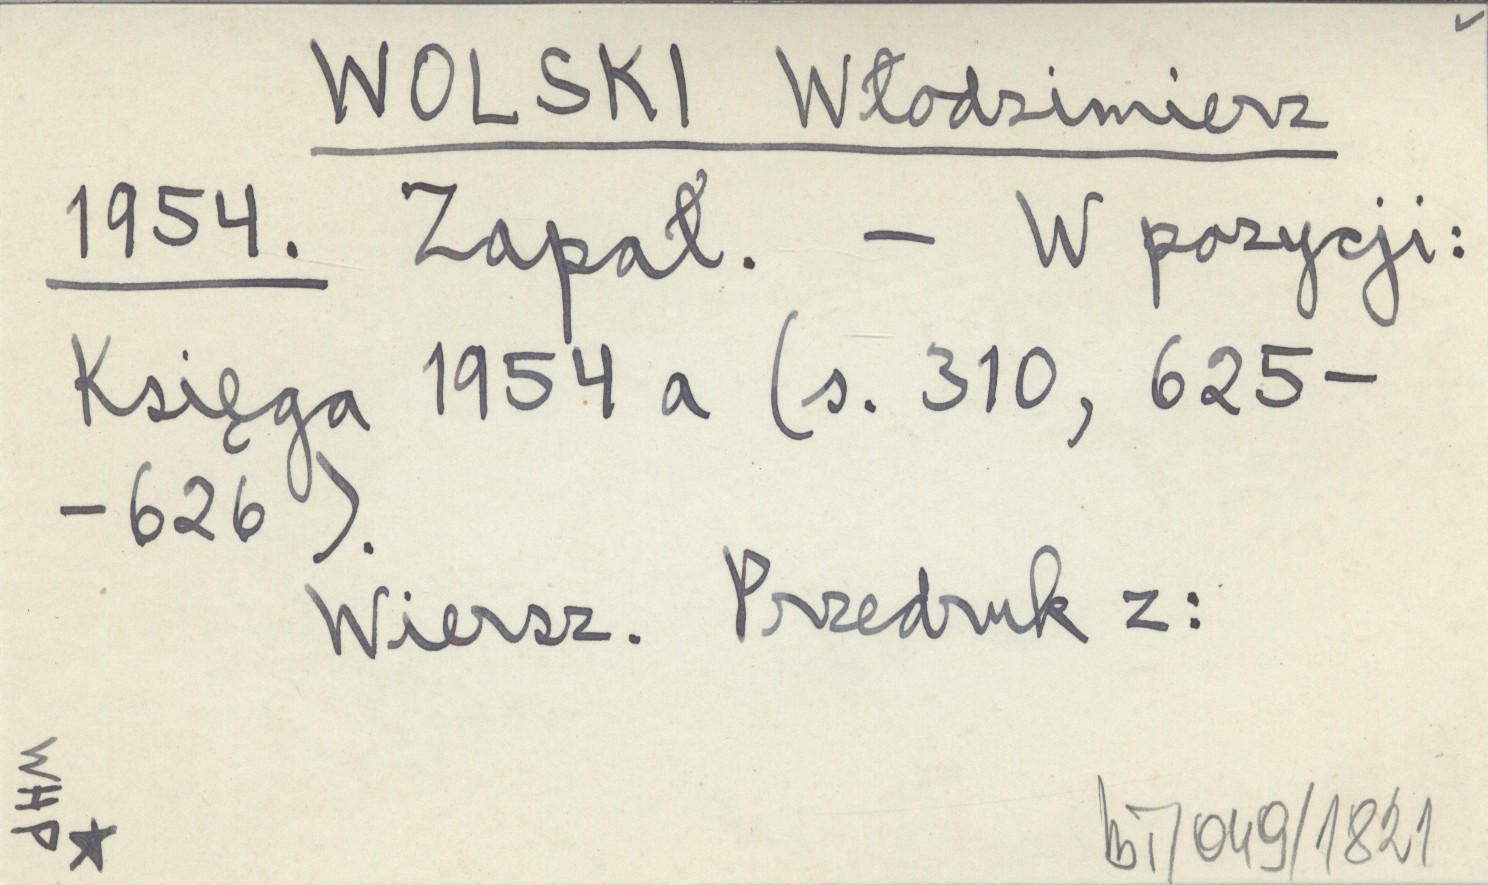 WOLSKI Włodzimierz
1954. Zapał. — W pozycji:
Księga 1954 a (s. 310, 625-
-626).
Wiersz. Przedruk z:
WHP
049/1821